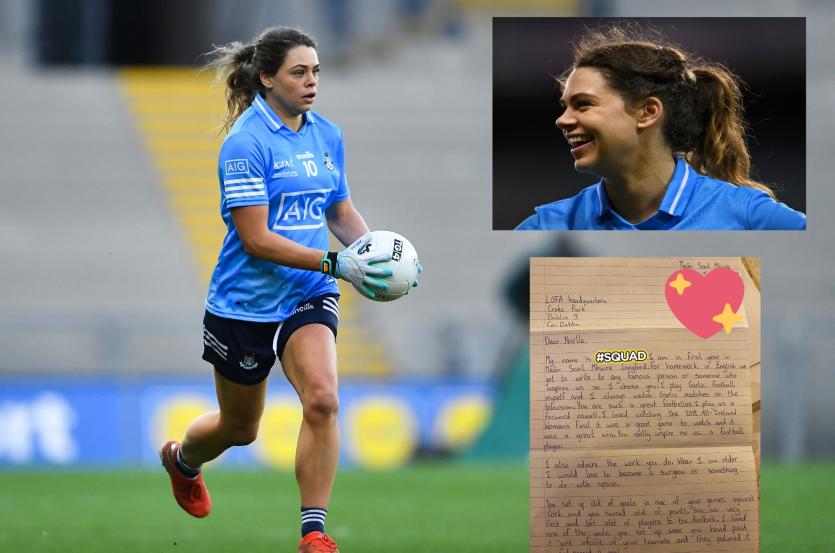 AIG
oneills
LGFA
10
AIG
oneills
Meán Scoil Mhuire
LGFA headquarters
Croke Park
Dublin 3
Co. Dublin
Dear Noëlle,
My name is #SQUAD I am in first year in
Meán Scoil Mhuire Longford. for homework in English we
got to write to any famous person or someone who
inspires us so I chose you. I play Gaelic football
myself and I always watch Gaelic matches on the
television. You are such a great footballer. I play as a
forward aswell. I loved watching the 2018 All-Ireland
Womens Final it was a great game to watch and it
was a great win. You really inspire me as a football
player.
I also admire the work you do. When I am older
I would love to become a surgeon or something
to do with space.
You set up alot of goals in one of your games against
Cork and you scored alot of points. You are very
fast and bet alot of players to the football. I loved
one of the goals you set up were you hand past
it just infront of your teamate and they palmed it